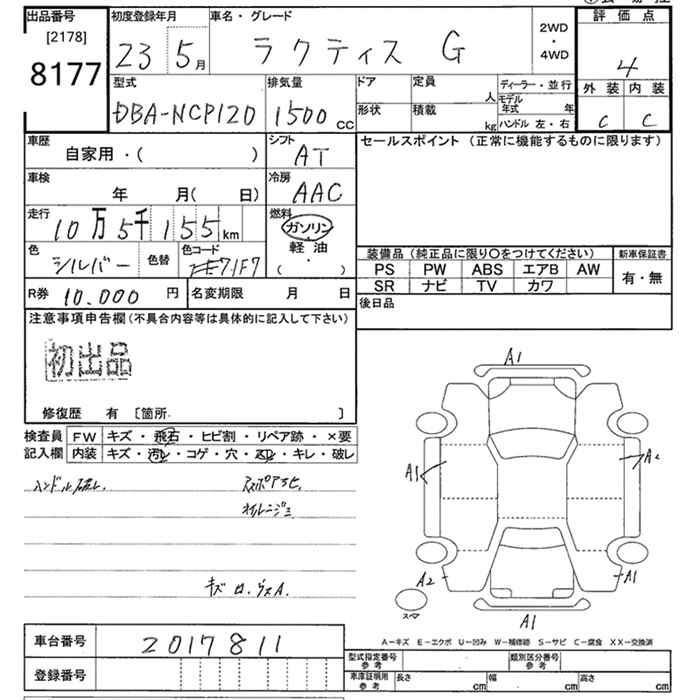 出品番号
[2178]
8177
初度登録年月
23 5月
車名・グレード
ラクティス G
2WD
・
4WD
評価点
4
外装 内装
C C
型式
DBA-NCP120
排気量
1500 CC
ドア
形状
定員 人
積載 kg
ディーラー・並行
モデル年式 年
ハンドル 左・右
車歴
自家用・( )
シフト
AT
車検
年 月( 日)
冷房
AAC
走行
10万5千155km
燃料
ガソリン
・
軽油
( ・ )
色
シルバー
色替
色コード
1F7
セールスポイント (正常に機能するものに限ります)
装備品 (純正品に限り○をつけてください)
PS PW ABS エアB AW
SR ナビ TV カワ
新車保証書
有・無
R券 10.000 円
名変期限 月 日
後日品
注意事項申告欄(不具合内容等は具体的に記入して下さい)
初出品
修復歴 有 [箇所. ]
検査員
記入欄
FW キズ・飛石・ヒビ割・リペア跡・×要
内装 キズ・汚レ・コゲ・穴・・キレ・破レ
ハンドル破レ.
キズ
A1
A1
A2
A2
A1
A1
スペア
A−キズ E−エクボ U−凹み W−補修跡 S−サビ C−腐食 XX−交換済
車台番号
2017811
登録番号
型式指定番号
参考
類別区分番号
参考
車庫証明用
参考
長さ cm
幅 cm
高さ cm